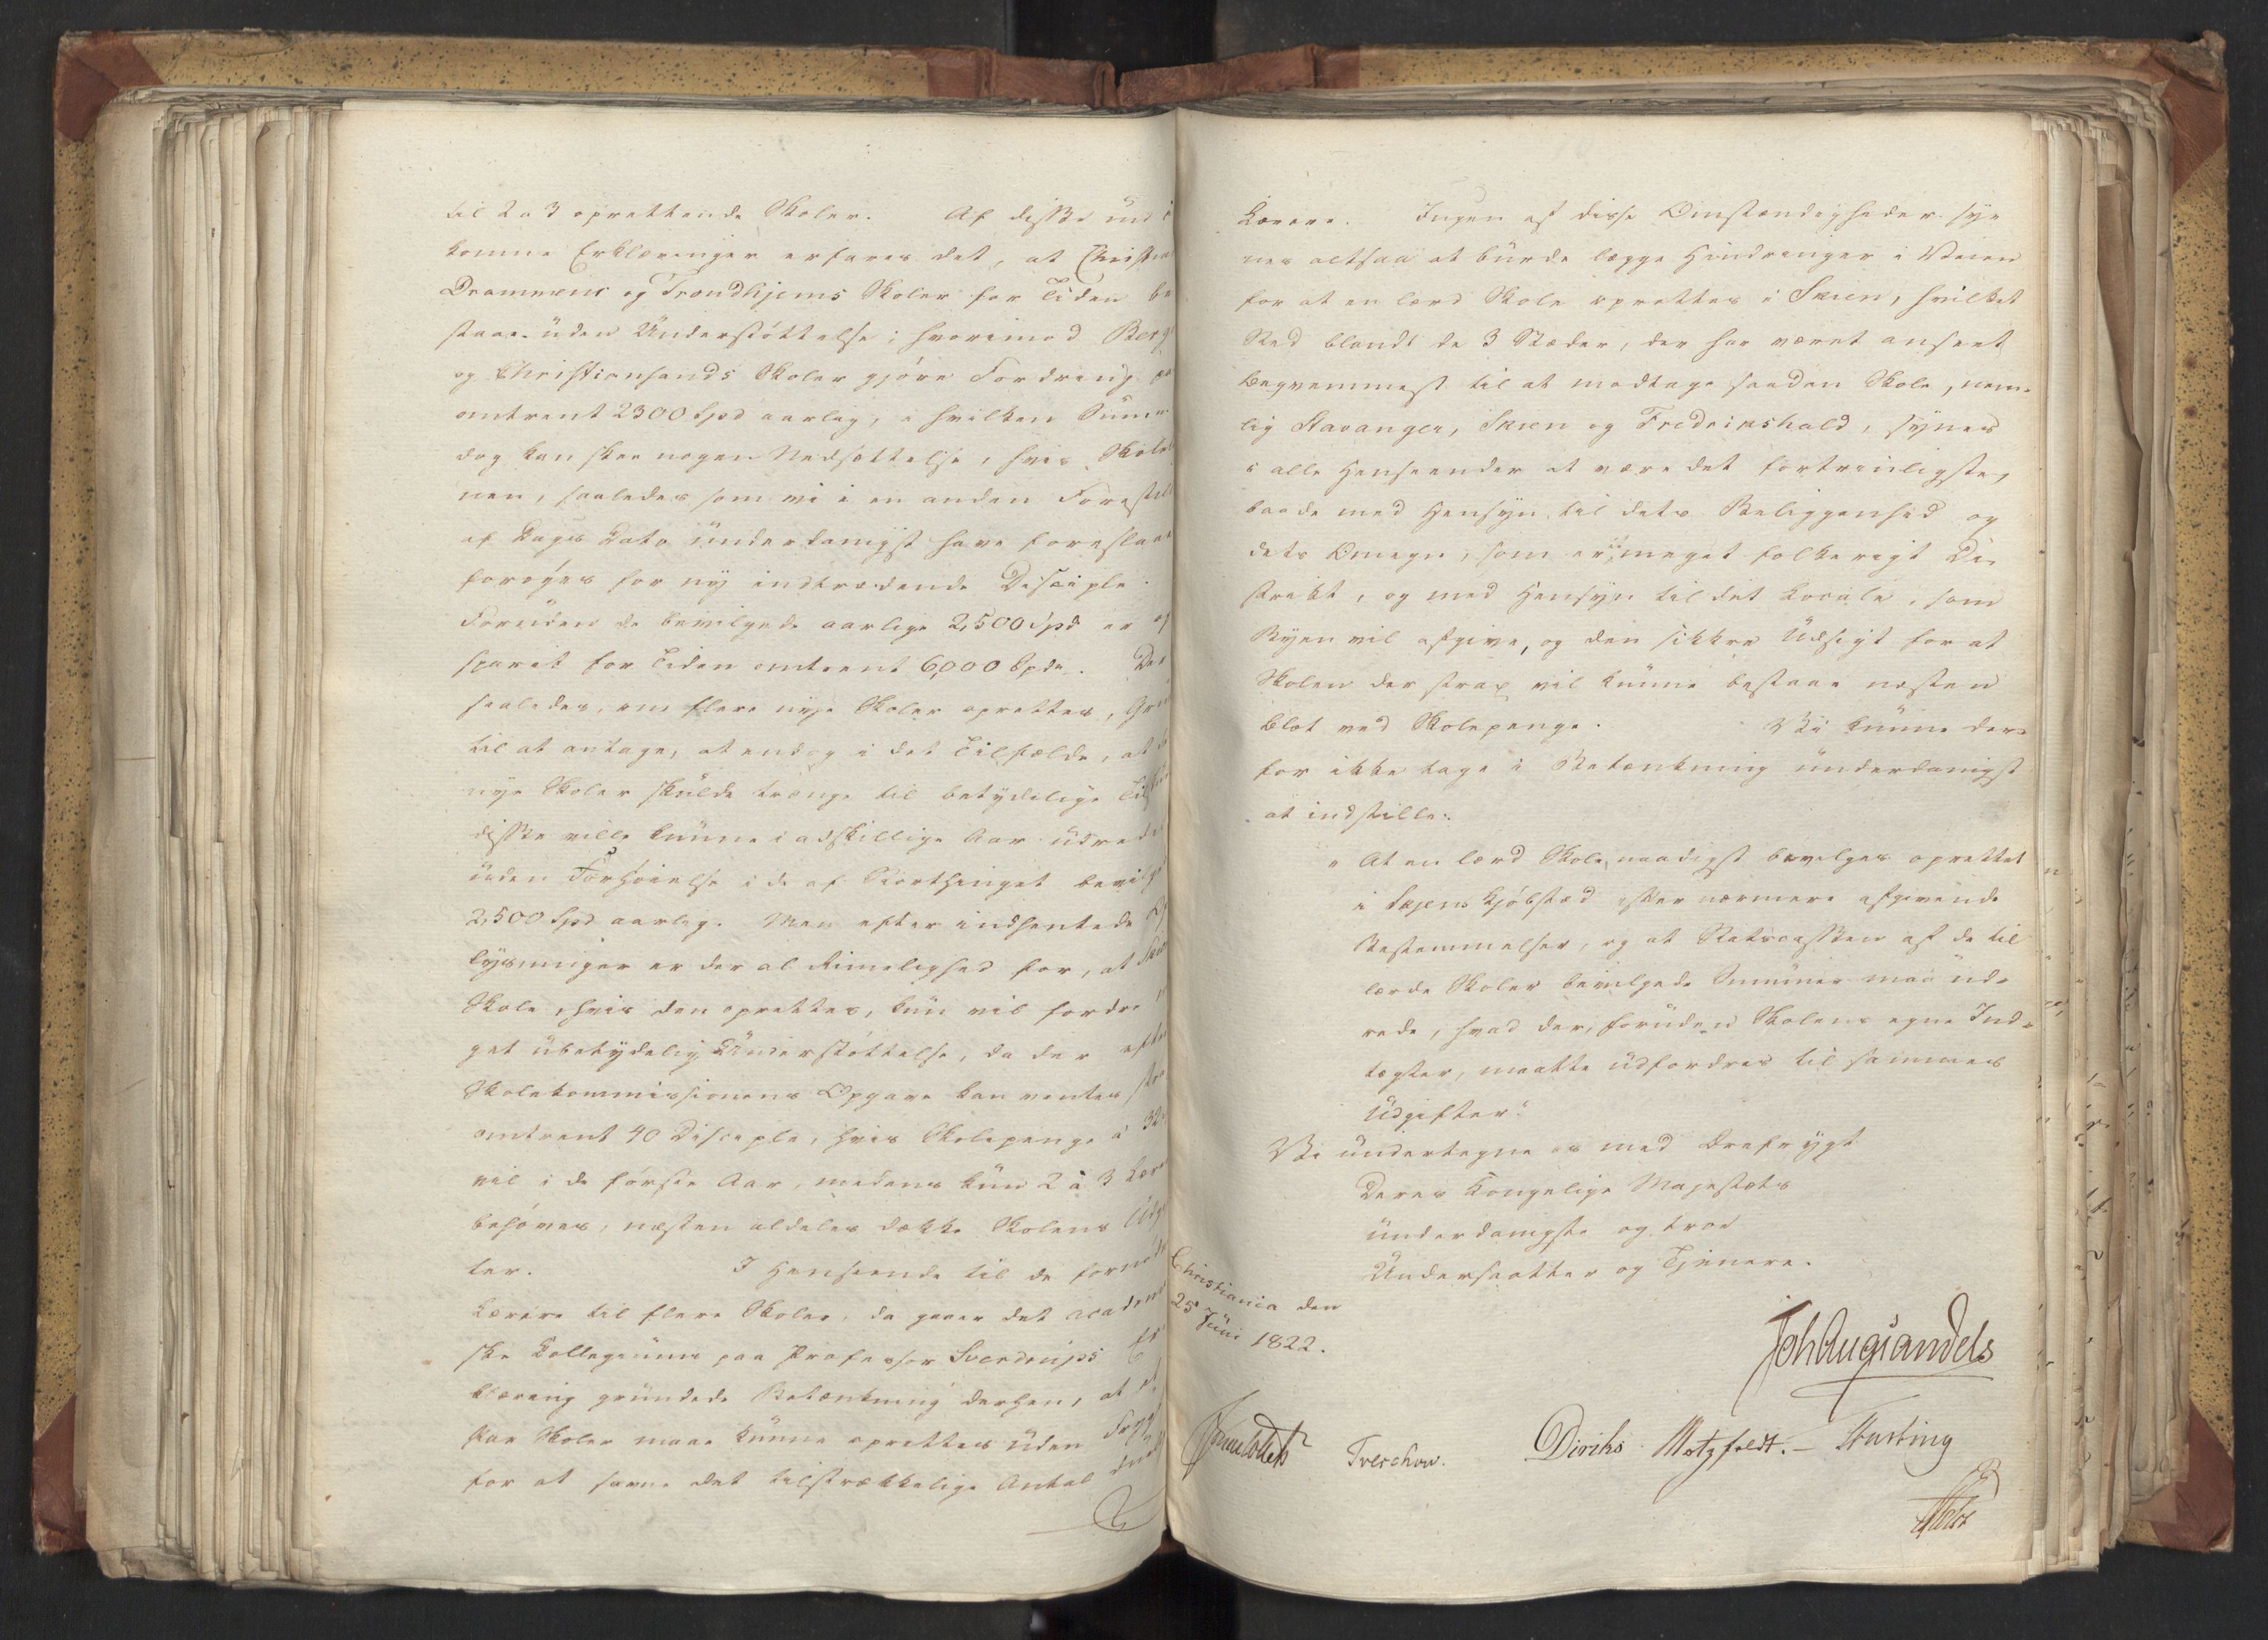 til 2 a 3 oprettende Skoler. Af disse ind
komne Erklæringer erfares det, at Christia
Drammens og Trondhjems Skoler for Tiden be
staae uden Understøttelse; hvorimod Berg
og Christiansands Skoler gjøre Fordring pa
omtrent 2300 Spd aarlig, i hvilken Summ
dog kan skee nogen Nedsættelse, hvis Skole
nen, saaledes som vi i en anden Forestill
af Dags Dato underdanigst have foreslaae
forøges for ny indtrædende Disciple.
Foruden de bevilgede aarlige 2,500 Spd er op
sparet for Tiden omtrent 6,000 Spdr. Der
saaledes, om flere nye Skoler oprettes, Gru
til at antage, at endog i det Tilfælde, at de
nye Skoler skulde trænge til betydelige Tilsk
disse ville kunne i adskillige Aar udredes
uden Forhøielse i de af Storthinget bevilge
2,500 Spd aarlig. Men efter indhentede Op
lysninger er der al Rimelighed for, at Skien
Skole, hvis den oprettes, kun vil fordre
get ubetydelig Understøttelse, da der efter
Skolekommissionens Opgave kan ventes stra
omtrent 40 Disciple, hvis Skolepenge à 32
vil i de første Aar, medens kun 2 à 3 Lær
behøves, næsten aldeles dække Skolens Udg
ter. I Henseende til de fornødn
Lærere til flere Skoler, da gaaer det academi
ske Collegiums paa Professor Sverdrups Er
klæring grundede Betænkning derhen, at et
Par Skoler maae kunne oprettes uden Frygt
for at savne det tilstrækkelige Antal
Lærere. Ingen af disse Omstændigheder sy
nes altsaa at burde lægge Hindringer i Veien
for at en lærd Skole oprettes i Skien, hvilket
Sted blandt de 3 Stæder, der har været anseet
beqvemmest til at modtage saadan Skole, nem-
lig Stavanger, Skien og Fredrikshald, synes
i alle Henseender at være det fortrinligste,
baade med Hensyn til dets Beliggenhed og
dets Omegn, som er et meget folkerigt Di-
strikt, og med Hensyn til det Locale, som
Byen vil afgive, og den sikkre Udsigt for at
Skolen der strax vil kunne bestaae næsten
blot ved Skolepenge. Vi kunne der-
for ikke tage i Betænkning underdanigst
at indstille:
" At en lærd Skole naadigst bevilges oprettet
i Skjens Kjøbstæd efter nærmere afgivende
Bestemmelser, og at Statscassen af de til
lærde Skoler bevilgede Summer maa ud-
rede, hvad der, foruden Skolens egne Ind-
tægter, maatte udfordres til sammes
Udgifter."
Vi undertegne os med Ærefrygt
Deres Kongelige Majestæts
underdanigste og troe
Undersaatter og Tjenere.
Christiania den
25 Juni 1822.
JohAugSandels
Treschow. Diriks Motzfeldt.
Holst